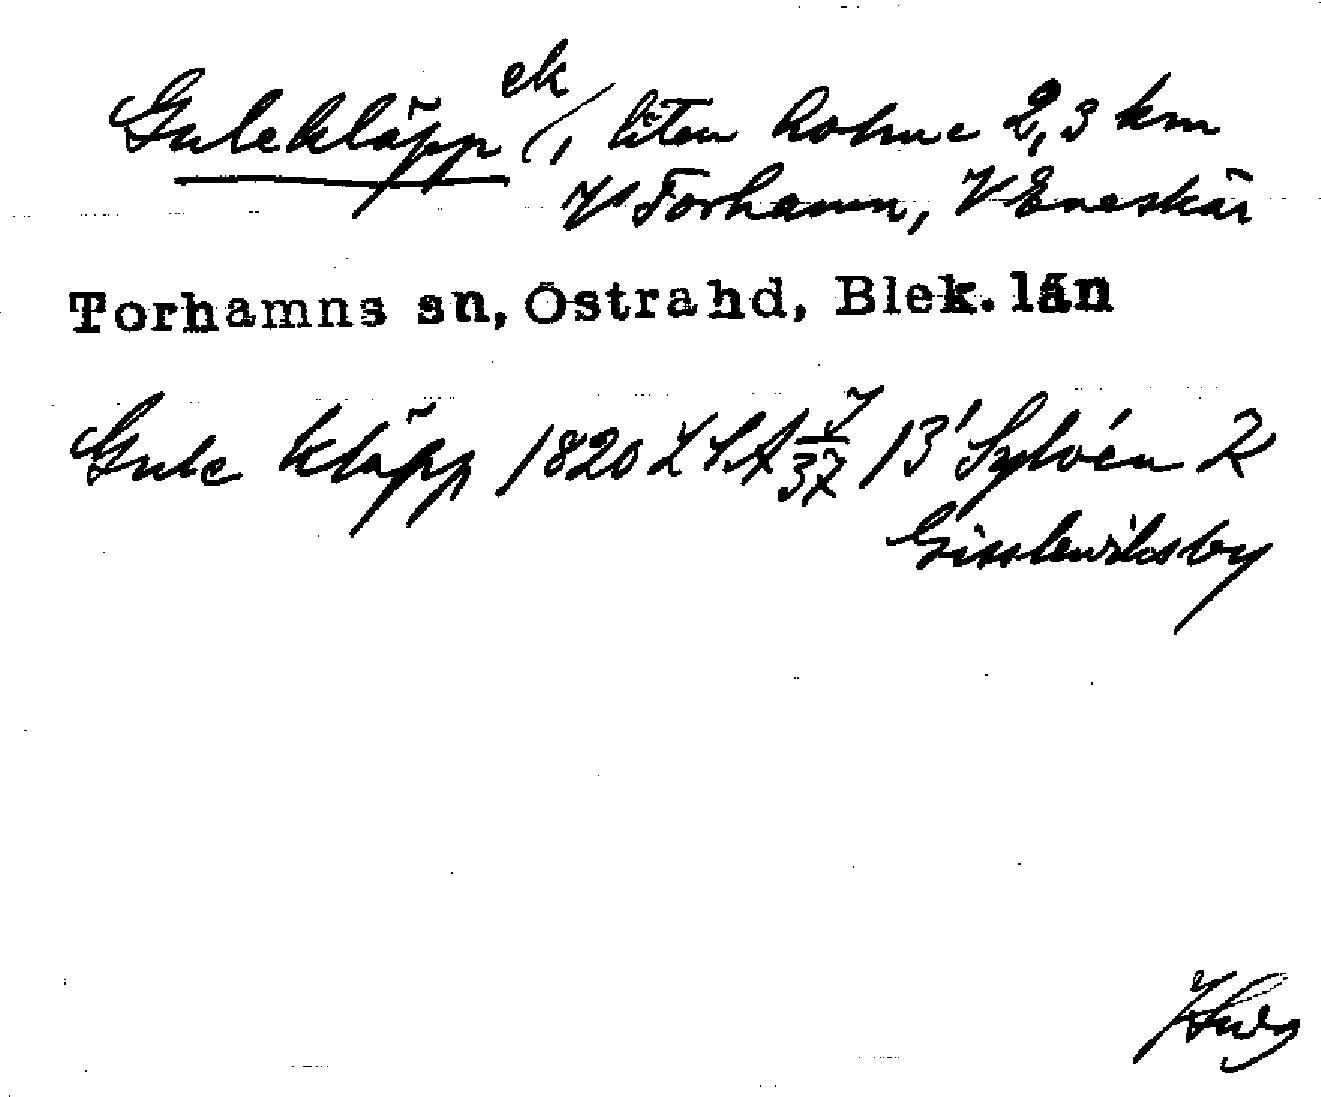 Gulekläpp ek /, liten holme 2,3 km
V Torhamn, V Eneskär
Torhamns sn, Östra hd, Blek. län
Gule kläpp 1820 LSA 7/37 B' Sylvén K
Gisslewiksby